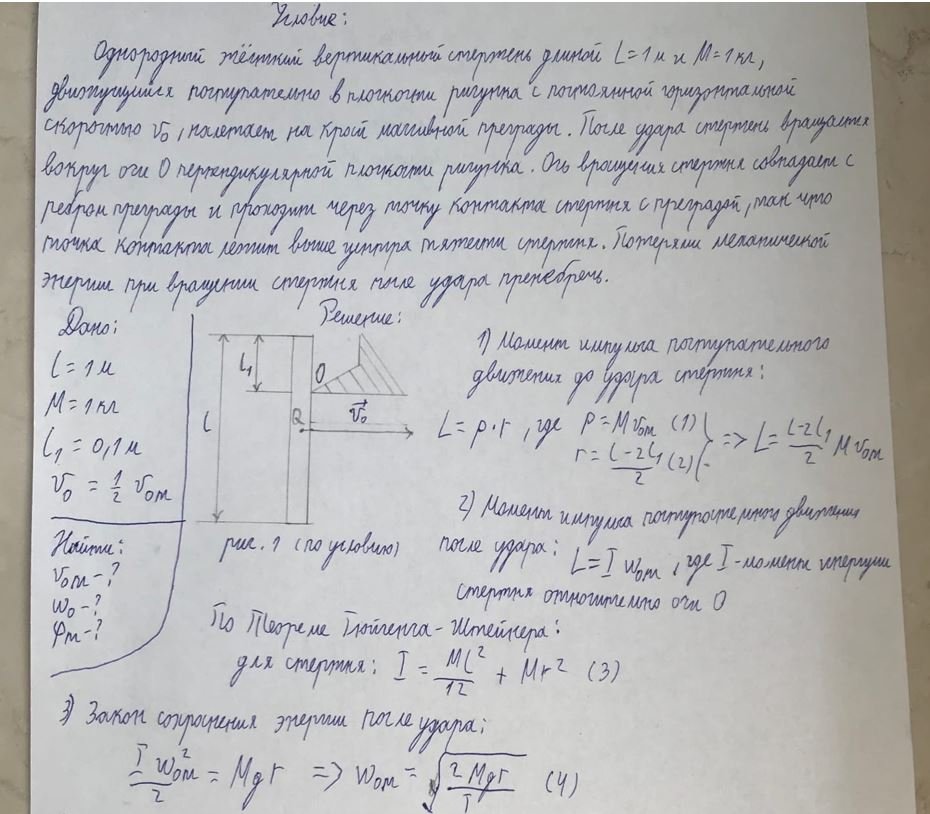 Условие:
Однородный жёсткий вертикальный стержень длиной L=1м и M=1кг,
движущийся поступательно в плоскости рисунка с постоянной горизонтальной
скоростью v₀, налетает на край массивной преграды. После удара стержень вращается
вокруг оси O перпендикулярной плоскости рисунка. Ось вращения стержня совпадает с
ребром преграды и проходит через точку контакта стержня с преградой, так что
точка контакта лежит выше центра тяжести стержня. Потерями механической
энергии при вращении стержня после удара пренебречь.
Дано:
L=1м
M=1кг
L₁=0,1м
v₀ = 1/2 v₀ₘ
Найти:
v₀ₘ-?
w₀-?
φₘ-?
Решение:
L
L₁
O
Q
v⃗₀
рис. 1 (по условию)
1) Момент импульса поступательного
движения до удара стержня:
L=p·r, где p=Mv₀ₘ (1)
r=(L-2L₁)/2 (2) => L=(L-2L₁)/2 Mv₀ₘ
2) Момент импульса поступательного движения
после удара: L=I w₀ₘ, где I-момент инерции
стержня относительно оси O
По Теореме Гюйгенса-Штейнера:
для стержня: I = ML²/12 + Mr² (3)
3) Закон сохранения энергии после удара:
I w₀ₘ²/2 = Mgr => w₀ₘ = √(2Mgr/I) (4)